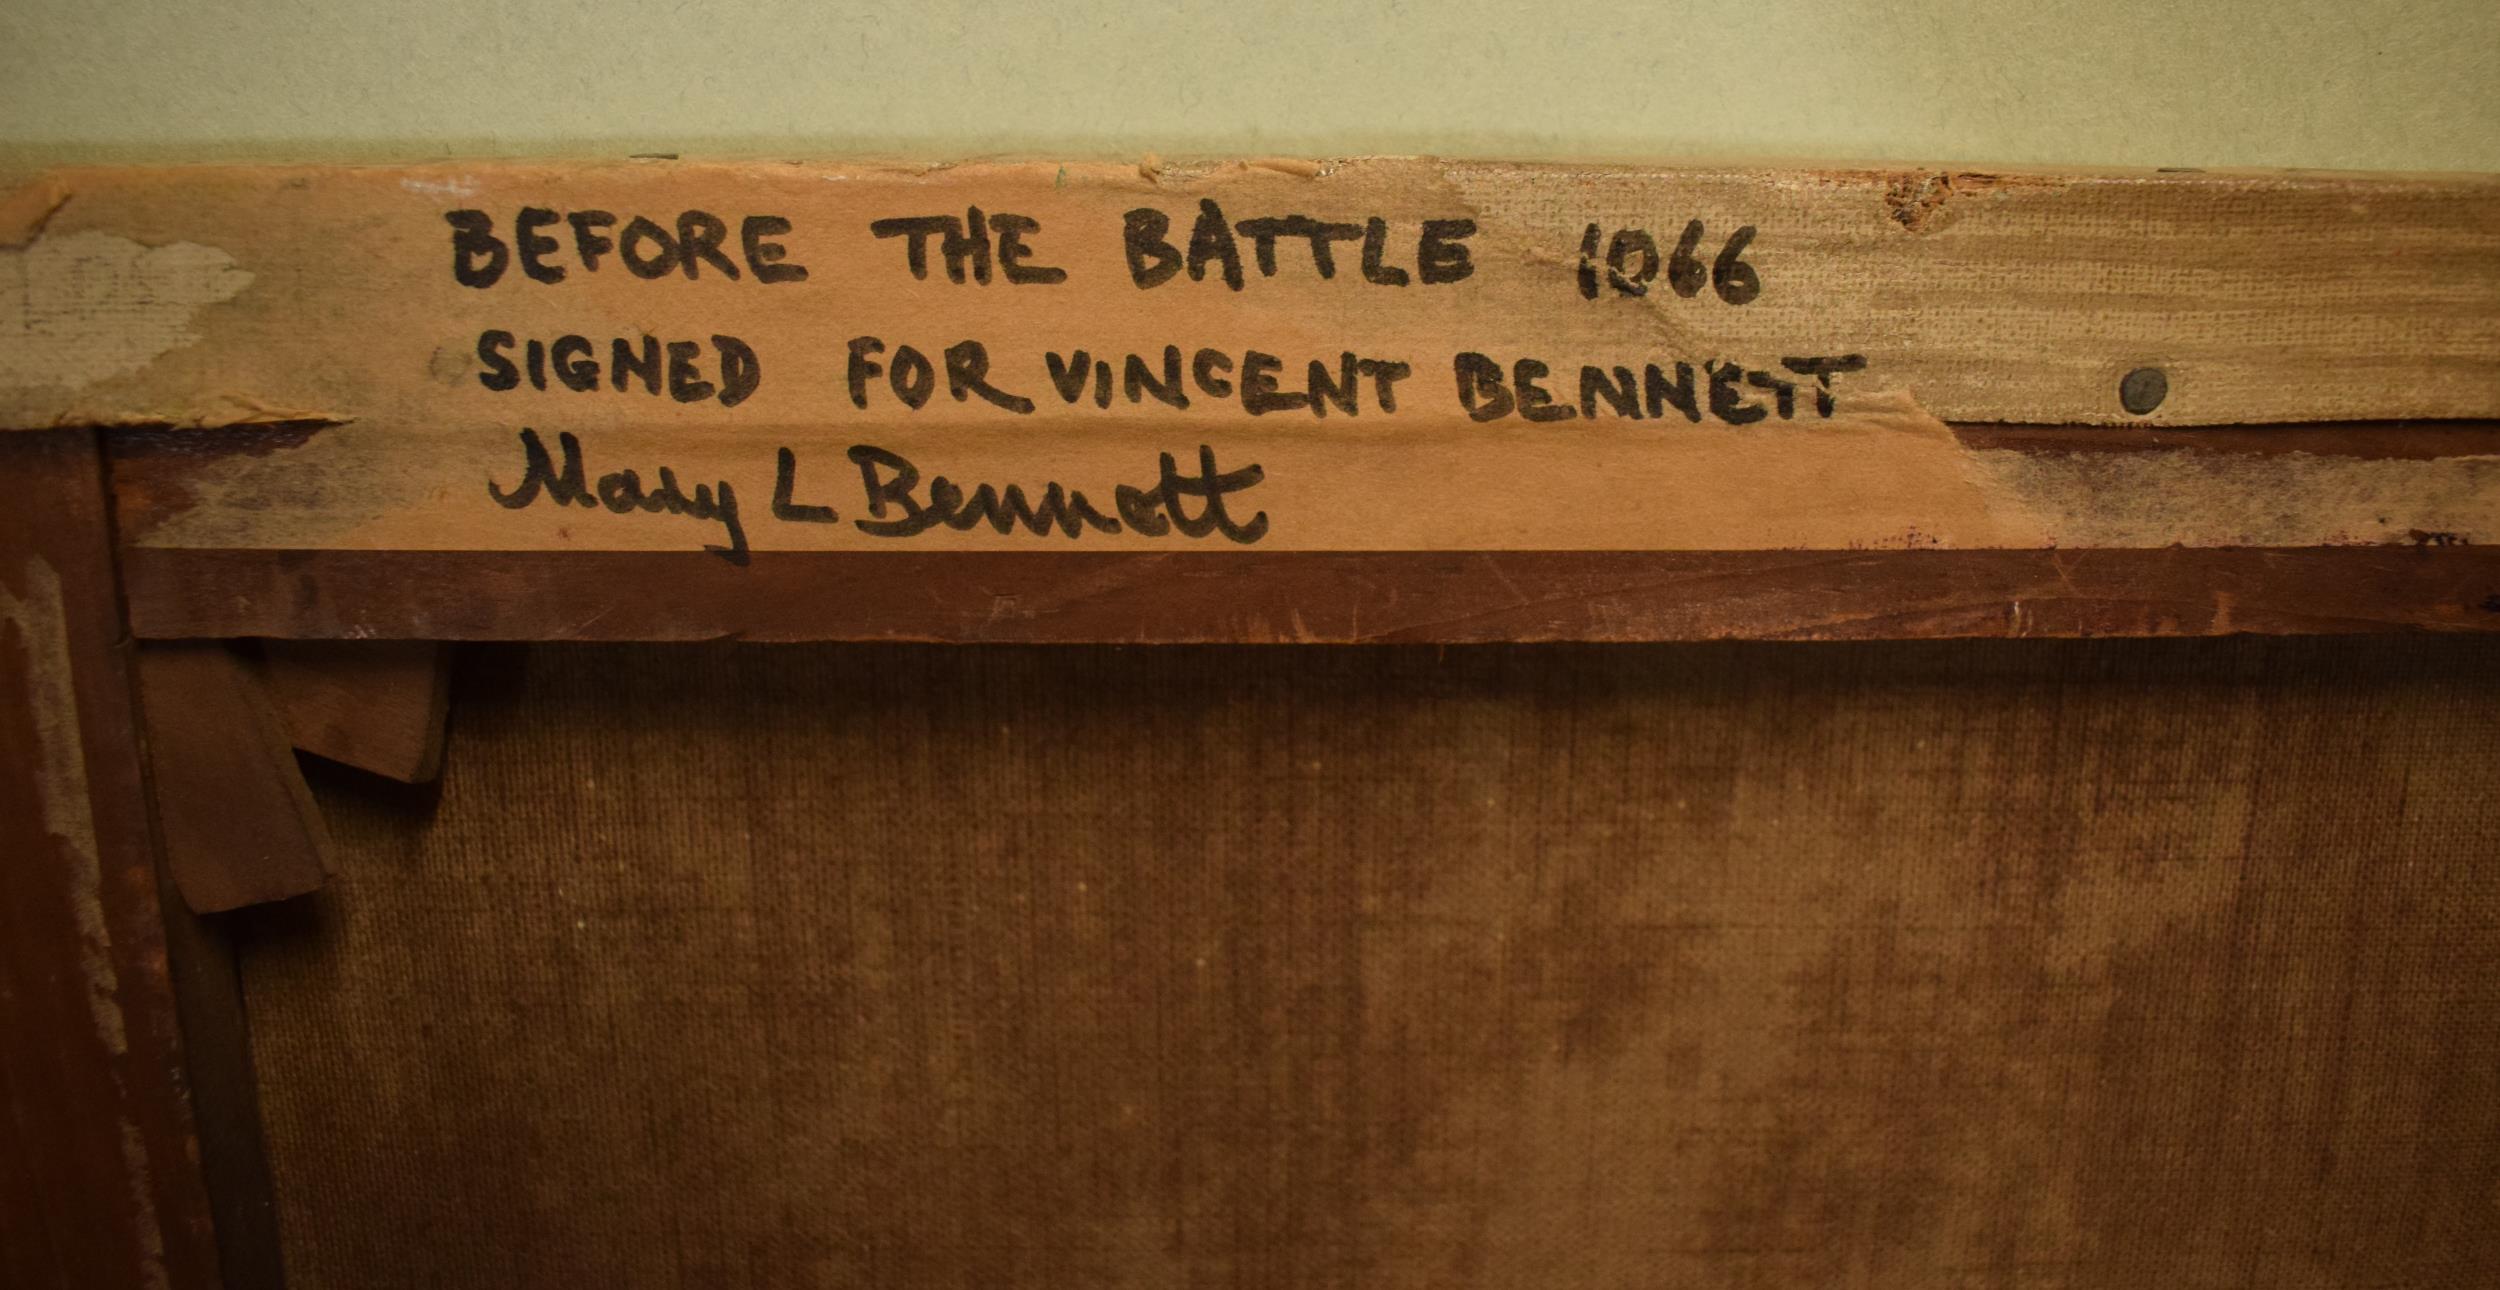 BEFORE THE BATTLE 1066
SIGNED FOR VINCENT BENNETT
Mary L Bennett